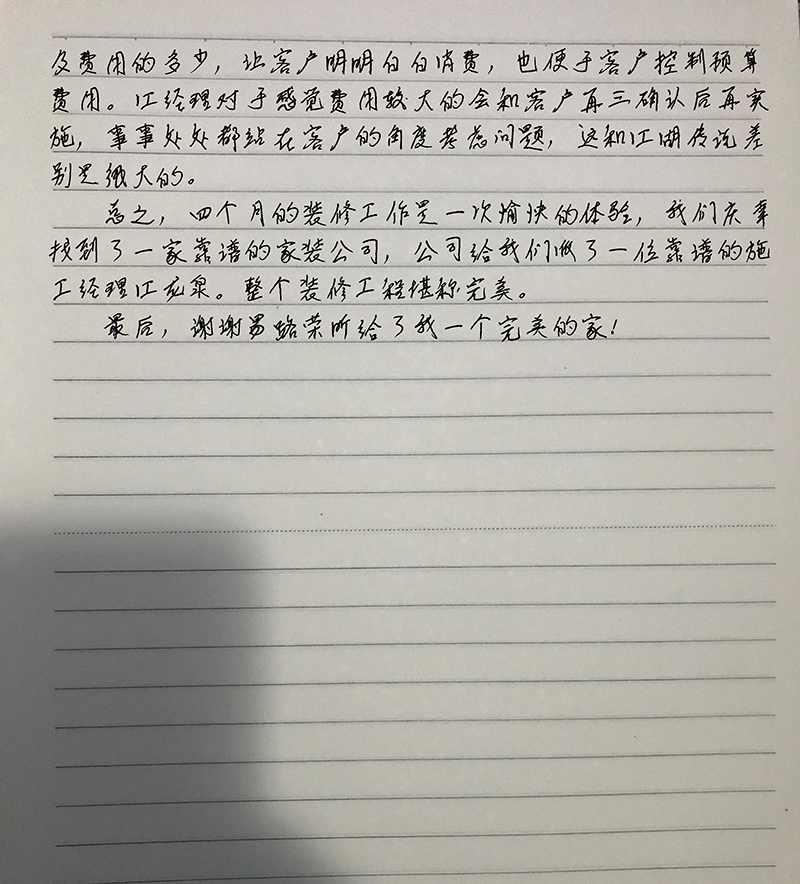 及费用的多少，让客户明明白白消费，也便于客户控制预算
费用。江经理对于感觉费用较大的会和客户再三确认后再实
施，事事处处都站在客户的角度考虑问题，这和江湖传说差
别是很大的。
总之，四个月的装修工作是一次愉快的体验，我们庆幸
找到了一家靠谱的家装公司，公司给我们派了一位靠谱的施
工经理江龙泉。整个装修工程堪称完美。
最后，谢谢易路荣昕给了我一个完美的家！